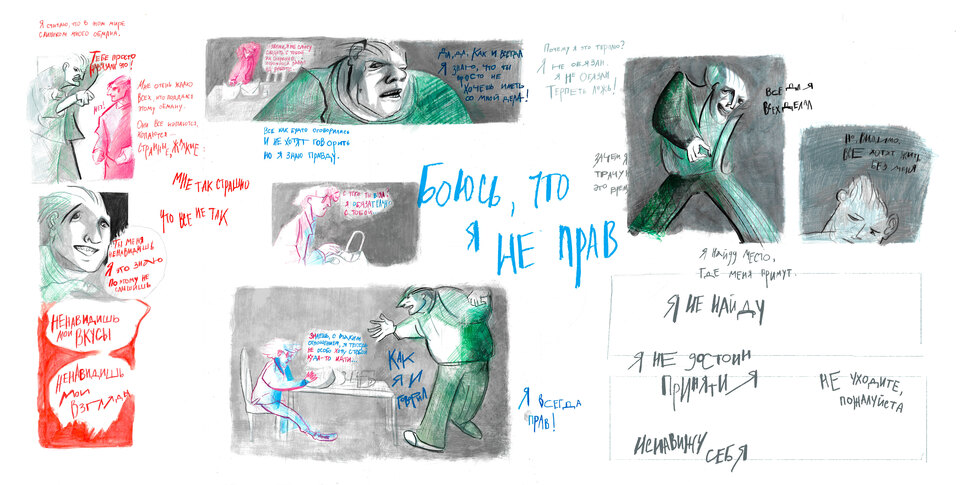 Я считаю, что в этом мире
слишком много обмана.
Тебе просто
нравится это!
НЕТ!
Мне очень жалко
всех, кто поддаётся
этому обману.
Они все
СТРАННЫЕ, ЖАЛКИЕ
МНЕ ТАК СТРАШНО
ЧТО ВСЕ НЕ ТАК
ТЫ МЕНЯ
НЕНАВИДИШЬ
Я ЭТО ЗНАЮ
ПОЭТОМУ НЕ
СЛЫШИШЬ
НЕНАВИДИШЬ
МОИ
ВКУСЫ
НЕНАВИДИШЬ
МОИ
ВЗГЛЯДЫ
ДА, ДА. КАК И ВСЕГДА
Я ЗНАЮ, ЧТО ТЫ
ПРОСТО НЕ
ХОЧЕШЬ ИМЕТЬ
СО МНОЙ ДЕЛА!
ВСЕ КАК БУДТО СГОВОРИЛИСЬ
И НЕ ХОТЯТ ГОВОРИТЬ
НО Я ЗНАЮ ПРАВДУ.
С ТОБОЙ
БОЮСЬ, ЧТО
Я
НЕ ПРАВ
КАК
Я И
ГОВОРИЛ
Я ВСЕГДА
ПРАВ!
Почему я это терплю?
Я НЕ ОБЯЗАН.
Я НЕ ОБЯЗАН
ТЕРПЕТЬ ЛОЖЬ!
ЗАЧЕМ Я
ТРАЧУ
ЭТО ВРЕМЯ
НО, ВИДИМО,
ВСЕ ХОТЯТ ЖИТЬ
БЕЗ МЕНЯ
Я НАЙДУ МЕСТО,
ГДЕ МЕНЯ ПРИМУТ.
Я НЕ НАЙДУ
Я НЕ ДОСТОИН
ПРИНЯТИЯ
НЕ УХОДИТЕ,
ПОЖАЛУЙСТА
НЕНАВИЖУ
СЕБЯ